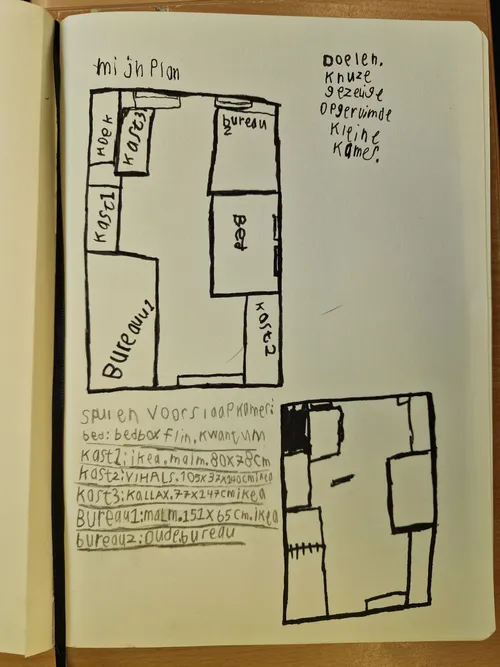 mijn plan
Doelen.
Knuze
gezellige
opgeruimde
kleine
kamer.
hoek
kast3
bureau
2
kast1
Bed
Bureau1
kast2
spullen voor slaapkamer:
bed: bedbox flin. kwantum
kast1: ikea. malm. 80x78cm
kast2: VIHALS. 105x37x140cm ikea
kast3: KALLAX. 77x147cm ikea
Bureau1: malm. 151x65 cm. ikea
bureau2: oude bureau